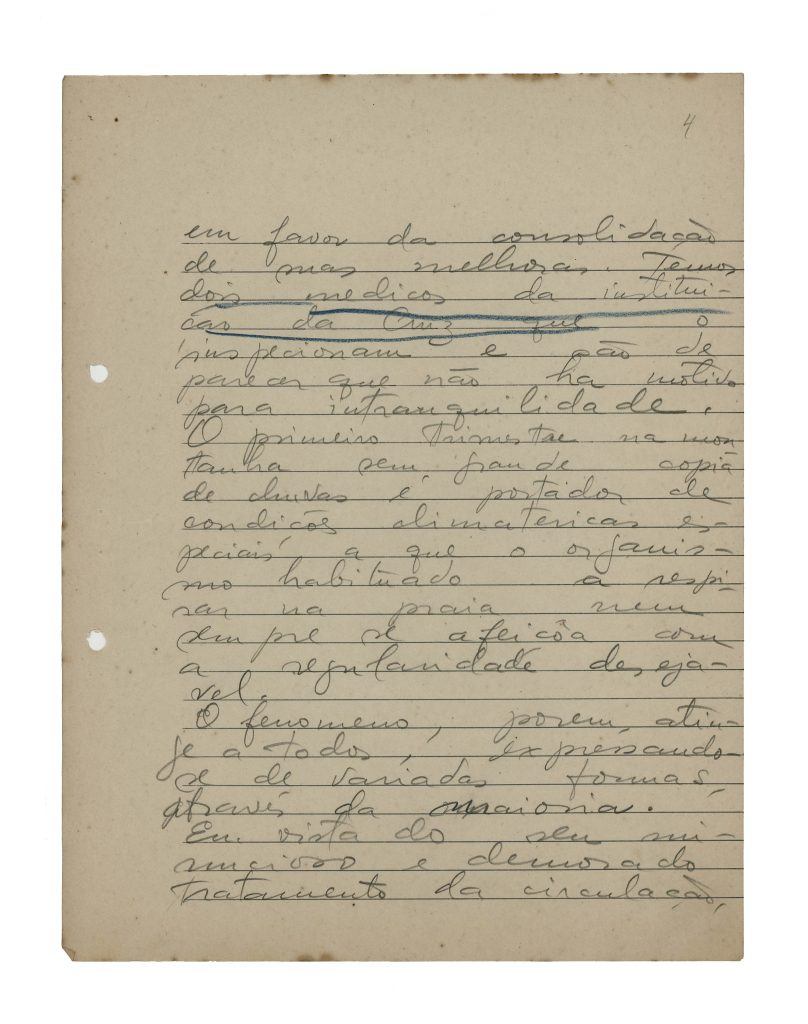 4
em favor da consolidação
de suas melhoras. Temos
dois medicos da institui-
ção da Cruz que o
inspecionam e são de
parecer que não ha motivo
para intranquilidade.
O primeiro trimestre na mon
tanha sem grande copia
de chuvas é portador de
condições climatericas es-
peciais, a que o organis-
mo habituado a respi-
rar na praia nem
sempre se afeiçôa com
a regularidade deseja-
vel.
O fenomeno, porem, atin-
je a todos, expressando-
se de variadas formas,
através da maioria.
Em vista do seu mi-
nucioso e demorado
tratamento da circulação,